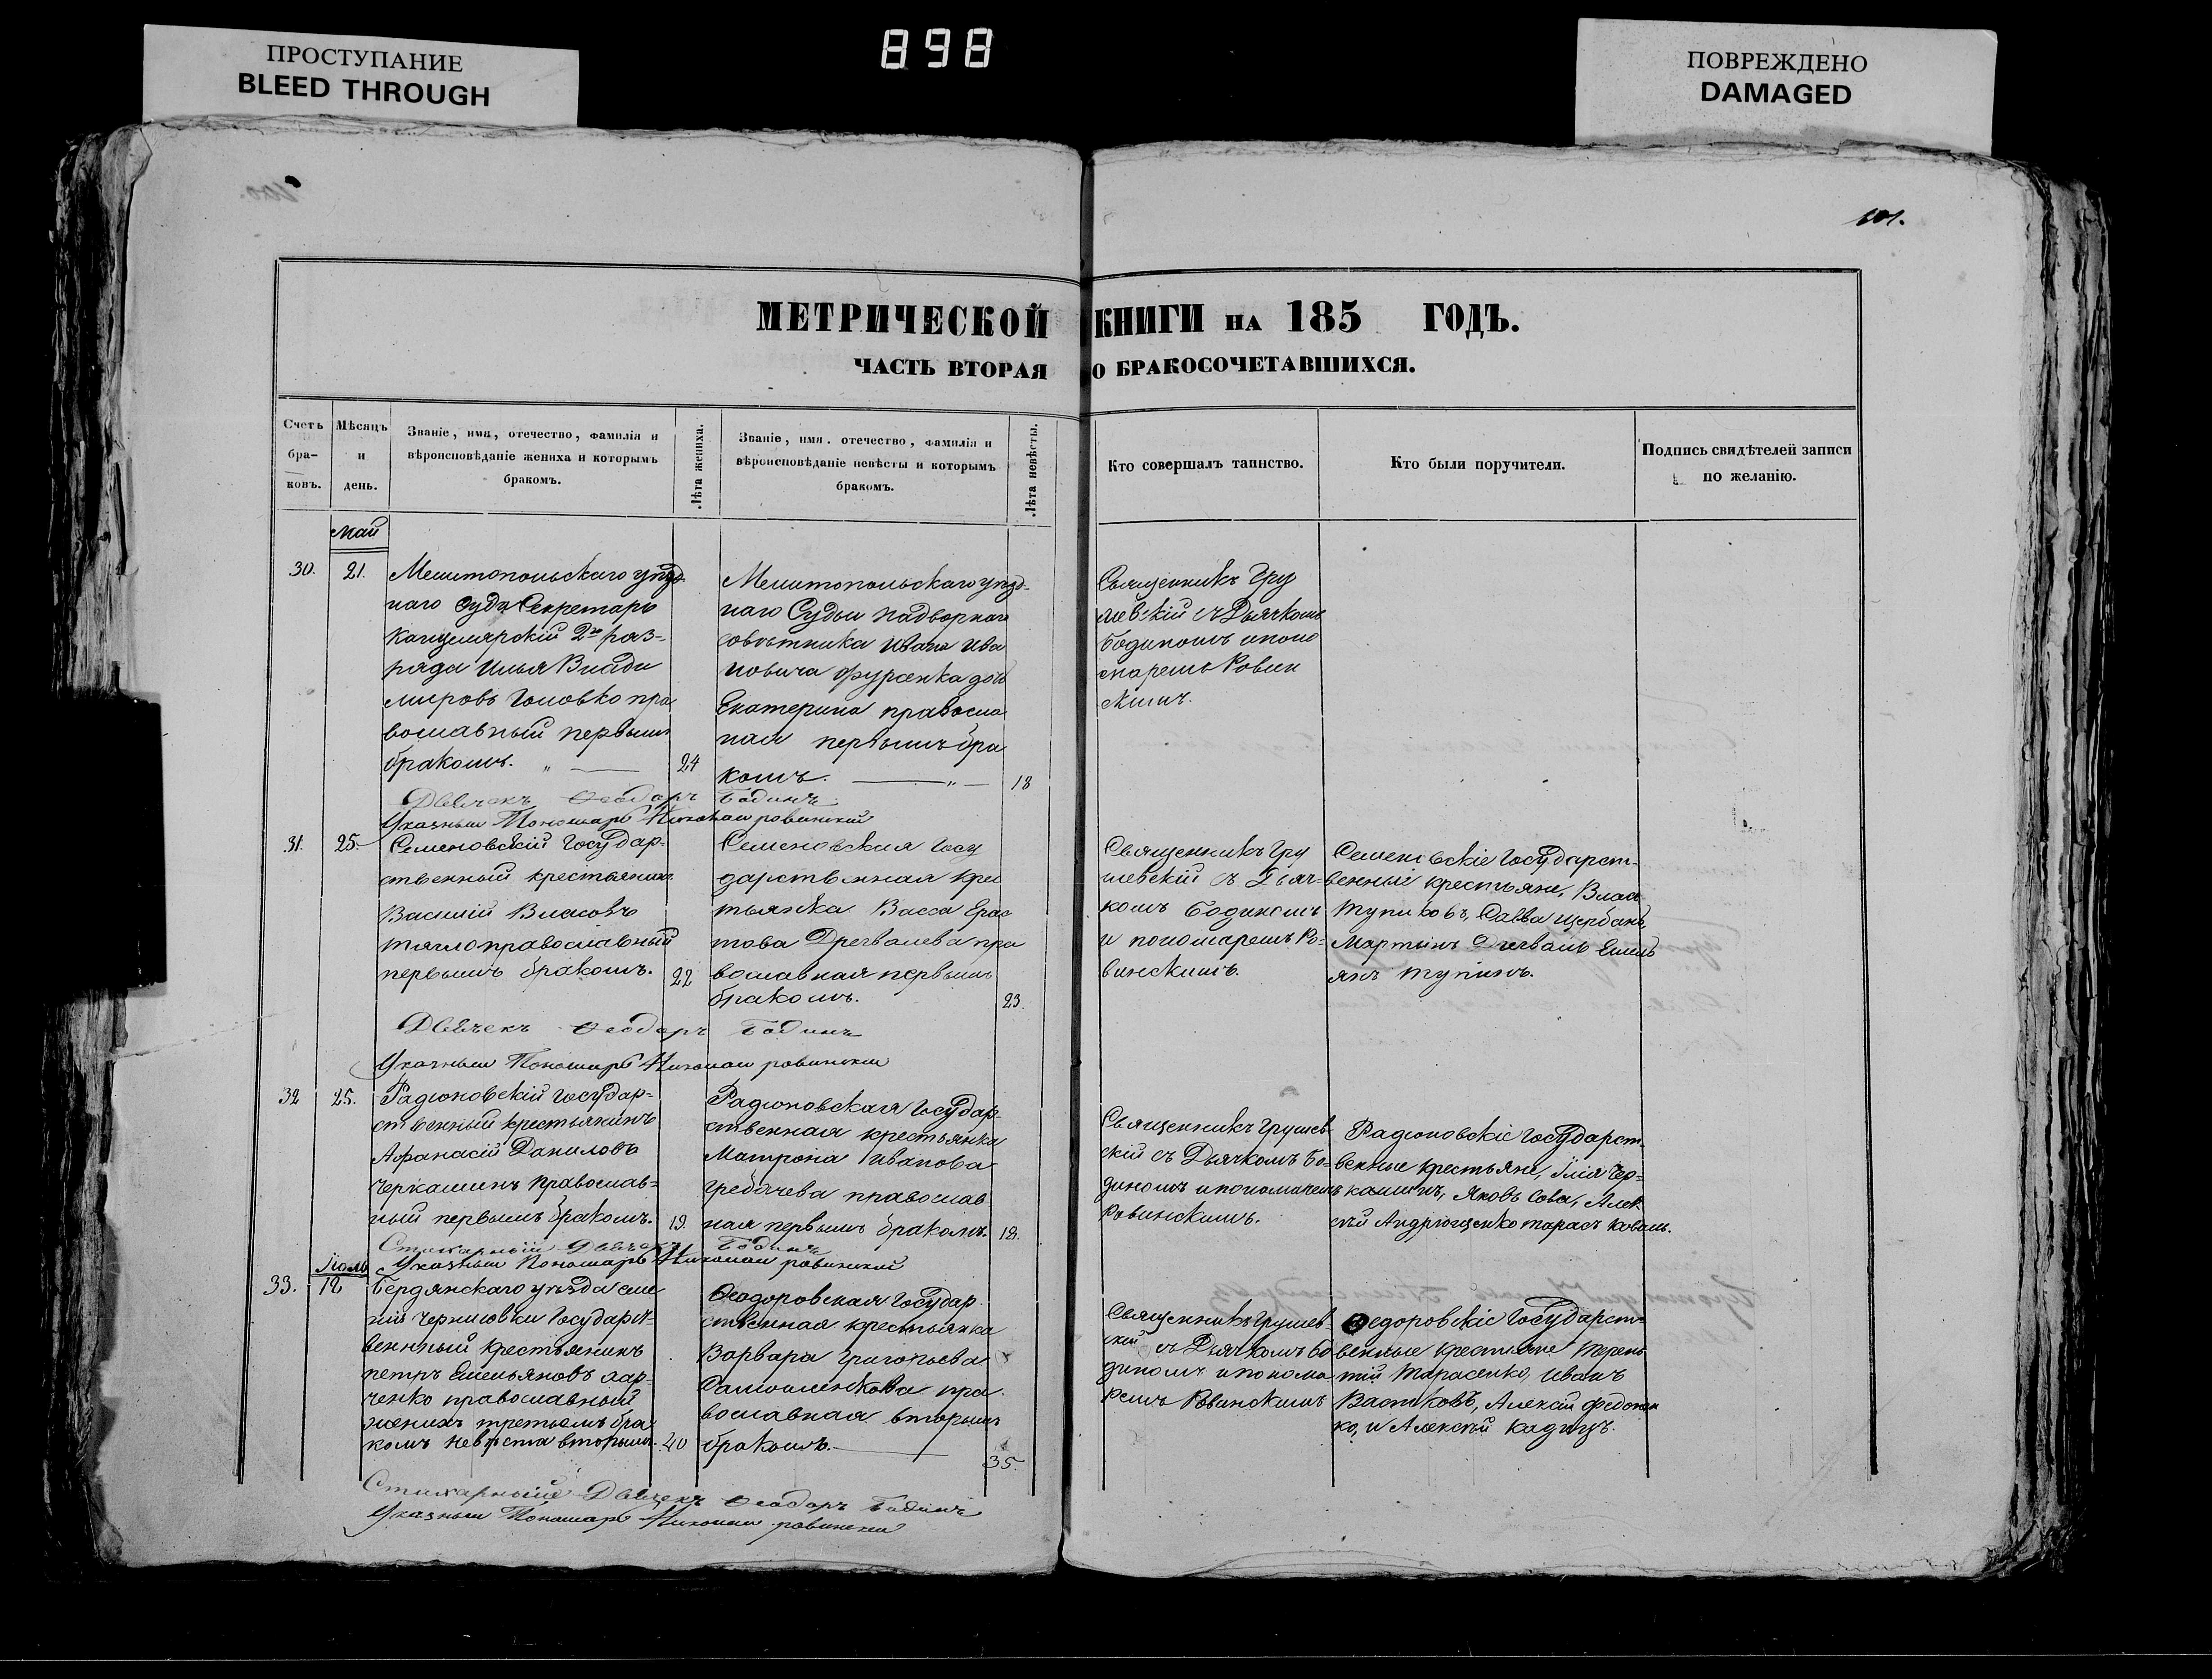 ПРОСТУПАНИЕ
BLEED THROUGH
898
ПОВРЕЖДЕНО
DAMAGED
101.
МЕТРИЧЕСКОЙ КНИГИ НА 185 ГОДЪ.
ЧАСТЬ ВТОРАЯ О БРАКОСОЧЕТАВШИХСЯ.
Счетъ бра-ковъ.
Мѣсяцъ и день.
Званіе, имя, отечество, фамилія и
вѣроисповѣданіе жениха и которымъ
бракомъ.
Лѣта жениха.
Званіе, имя. отечество, фамилія и
вѣроисповѣданіе невѣсты и которымъ
бракомъ.
Лѣта невѣсты.
Кто совершалъ таинство.
Кто были поручители.
Подпись свидѣтелей записи
по желанію.
Май
30.
21.
Мелитопольскаго уѣзд-
наго Суда Секретарь
Канцелярскій 2го раз-
ряда Илья Влади
мировъ Головко пра
вославный первымъ
бракомъ.
24
Мелитопольскаго уѣзд-
наго Судьи надворнаго
совѣтника Ивана Ива
новича Фурсенка дочь
Екатерина православ
ная первымъ бра
комъ.
18
Священникъ Гру
шевскій съ Дьячкомъ
Бодинымъ и поно
маремъ Ровин
скимъ.
Дьячекъ Ѳеодоръ Бодинъ
Указный Пономарь Николай ровинский
31.
25.
Семеновскій Государ-
ственный крестьянинъ
Василій Власовъ
тягло православный
первымъ бракомъ.
22
Семеновская Госу
дарственная крес
тьянка Васса Ерас
това Дрегвалева пра
вославная первымъ
бракомъ.
23.
Священникъ Гру
шевскій съ Дьяч-
комъ Бодинымъ
и пономаремъ Ро-
винскимъ.
Семеновскіе Государст-
венный крестьяне, Власъ
Тупиковъ, Савва Щербань,
Мартынъ Дрегваль Емель
янъ Тупикъ.
Дьячекъ Ѳеодоръ Бодинъ
Указный Пономарь Николай ровинский
32
25.
Радіоновскій Государ-
ственный крестьянинъ
Афанасій Даниловъ
Черкашинъ Православ-
ный первымъ бракомъ.
19.
Радіоновская Государ-
ственная крестьянка
Матрона Иванова
Гребачева православ
ная первымъ бракомъ.
18.
Священникъ Грушев-
скій съ Дьячкомъ Бо-
динымъ и пономаремъ
Ровинскимъ.
Радіоновскіе Государст-
венные крестьяне, Илія Чер-
кашинъ, Яковъ Сова, Алек
сѣй Андрющенко тарасъ Коваль.
Стихарный Дьячекъ Бодинъ
Указный Пономарь Николай ровинский
Іюль
33.
12
Бердянскаго уѣзда селе
нія Черниговки Государст-
венный крестьянинъ
петръ Емельяновъ Хар-
ченко православный
женихъ третьимъ бра
комъ невѣста вторымъ.
40
Ѳеодоровская Государ
ственная крестьянка
Варвара Григорьева
Самойленкова пра
вославная вторымъ
бракомъ.
35.
Священникъ Грушев-
скій съ Дьячкомъ Бо
динымъ и понома
ремъ Ровинскимъ
Ѳедоровскіе Государст-
венные крестьяне Терен
тій Тарасенко, Иванъ
Востиковъ, Алексій Федотен
ко, и Алексѣй Кадигръ.
Стихарный Дьячекъ Ѳеодоръ Бодинъ
Указный Пономарь Николай ровинский